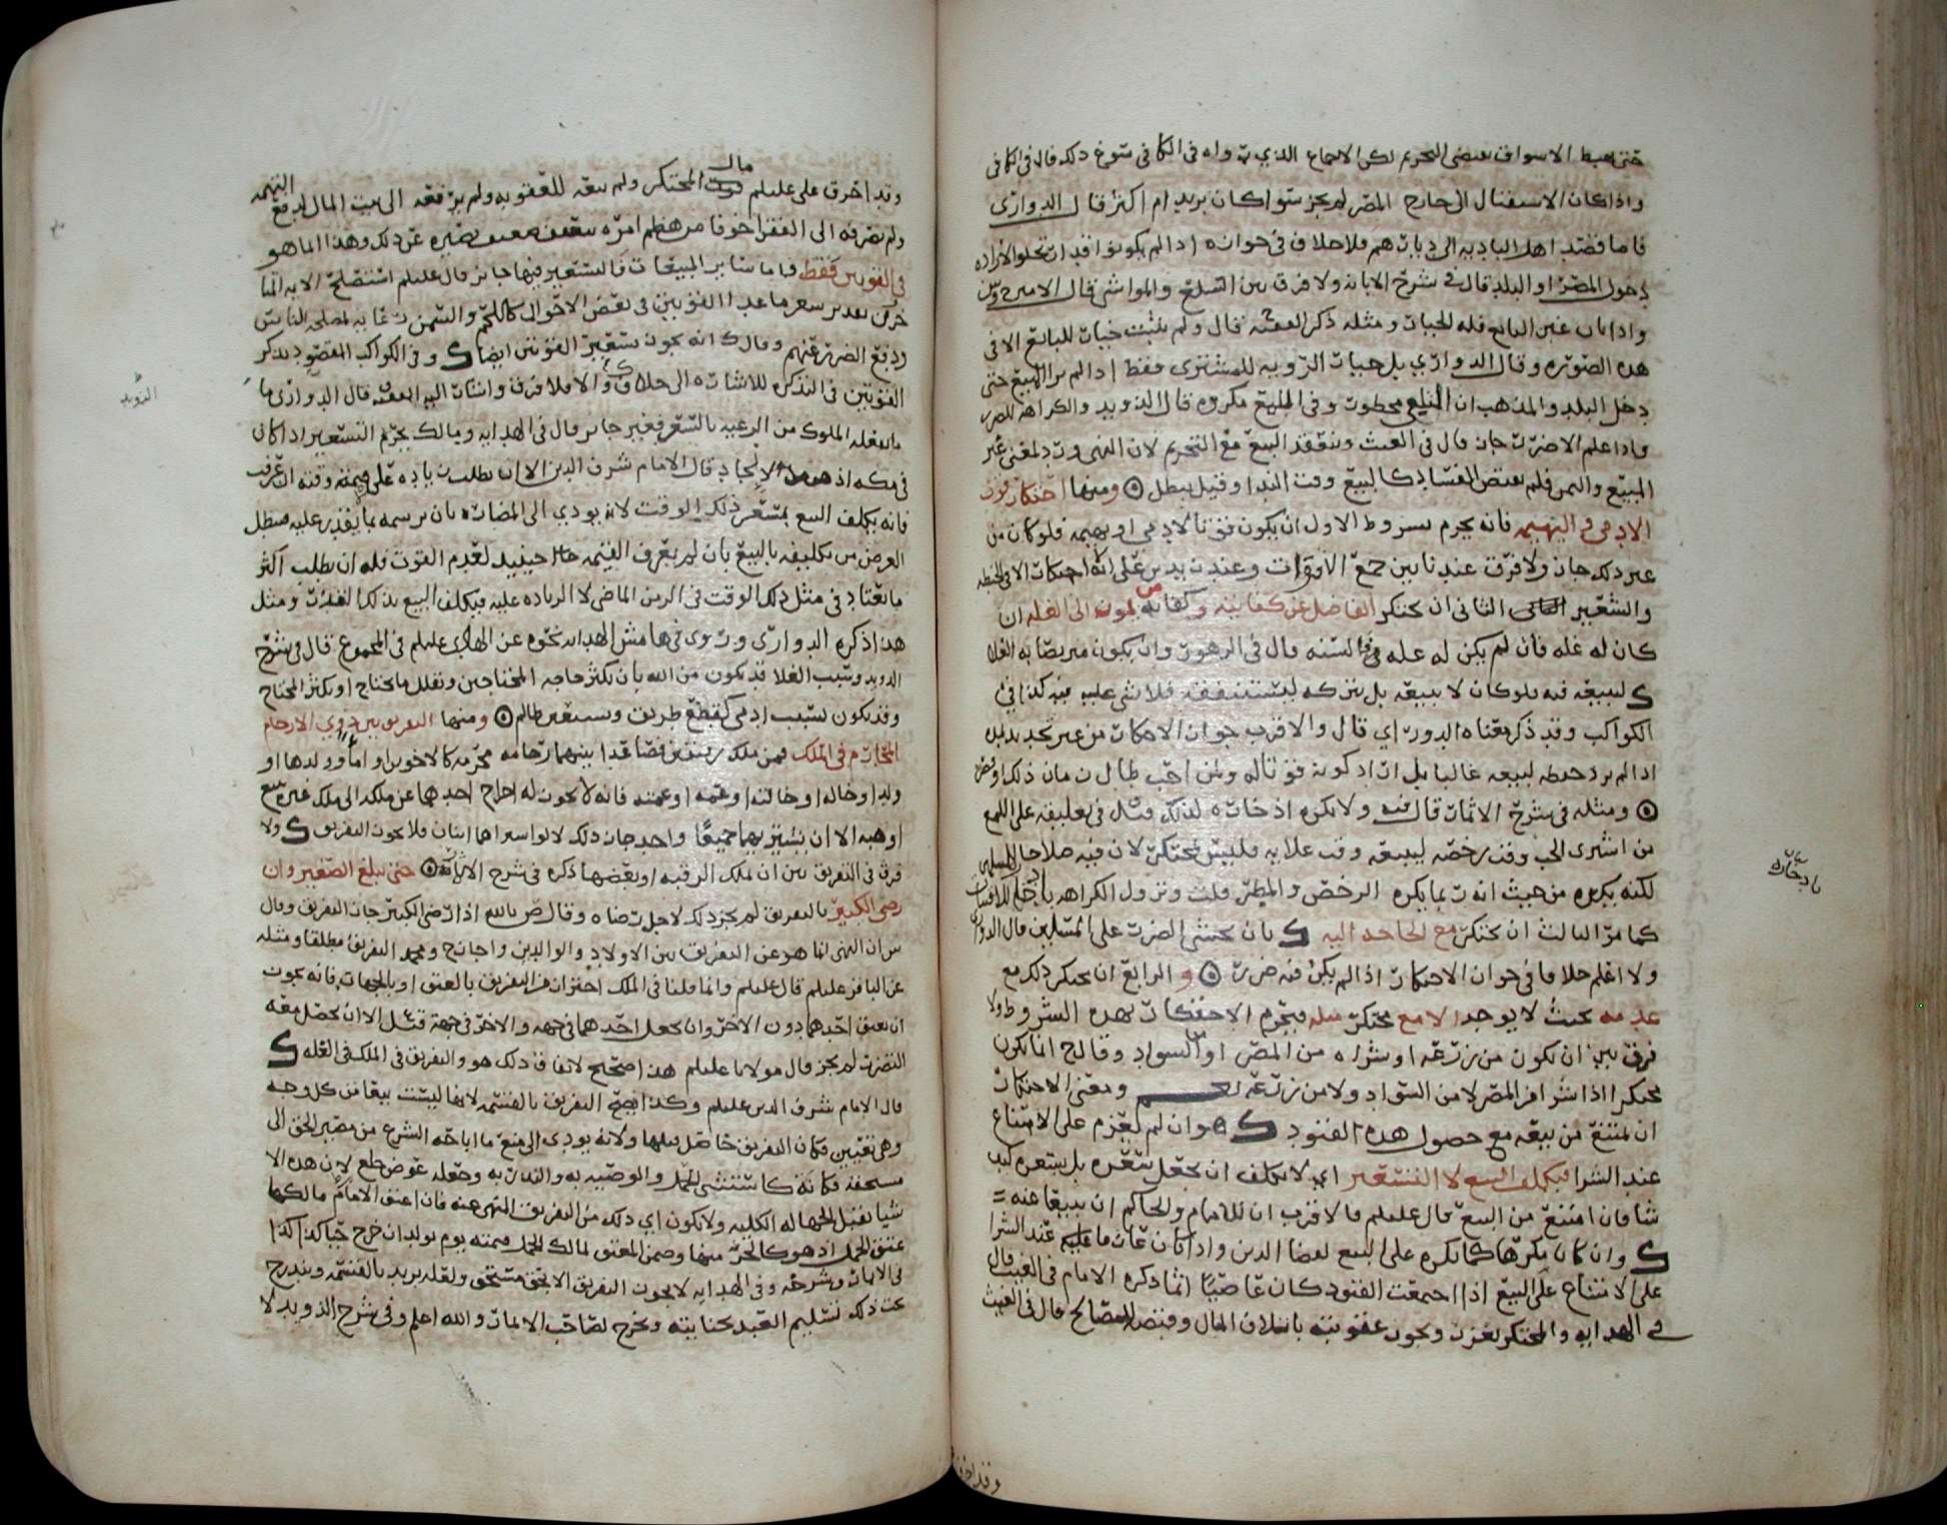 حتى يهبط الاسواق يقتضي التحريم لكن الاجماع الذي رواه في الكافي سوغ ذلك قال في الكافي
واذا كان الاستقبال الى خارج المصر لم يجز سوا كان بريدا ام اكثر قال الدواري
فاما قصد اهل البادية الى ديارهم فلا خلاف في جوازه اذا لم يكونوا قد ارتحلوا لارادة
دخول المصر او البلد قال في شرح الابانه ولا فرق بين السلع والمواشي قال الامير ح
واذا بان غبن البائع فله الخيار ومثله ذكر الفقيه ف قال ولم يثبت خيار للبائع الا في
هذه الصوره وقال الدواري بل خيار الرويه للمشتري فقط اذا لم ير المبيع حتى
دخل البلد والمذهب ان التلقي محظور وفي مكروه قال الذويد والكراهه للضرر
واذا علم الاضرار جاز قال في الغيث وينعقد البيع مع التحريم لان النهي ورد لمعنى غير
المبيع والثمن فلم يقتض الفساد كالبيع وقت الندا وقيل يبطل ومنها احتكار قوت
الادمي والبهيمه فانه يحرم بشروط الاول ان يكون قوتا لادمي او بهيمه فلو كان من
غير ذلك جاز ولا فرق عندنا بين جمع الاقوات وعند زيد بن علي انه لا احتكار الا في الحنطه
والشعير الثاني ان يحتكر الفاضل عن كفايته وكفاية من يمون الى الغله ان
كان له غله فان لم يكن له غله فالسنه قال في الزهور وان يكون متربصا به الغلا
ليبيعه فيه فلو كان لا يبيعه بل يتركه ليستنفقه فلا شي عليه فيه كذا في
الكواكب وقد ذكر معناه الدواري قال والاقرب جواز الاحتكار من غير تحديد
اذا لم يرد حفظه لبيعه غالبا بل اراد كونه قوتا له ولمن احب طال زمان ذلك او قصر
ومثله في شرح الاثمار قال فيه ولا يكره ادخاره لذلك قيل في تعليقه على اللمع
من اشترى الحب وقت رخصه ليبيعه وقت غلايه فليس بمحتكر لان فيه صلاحا للمسلمين
لكنه يكره من حيث انه ربما يكره الرخص والمطر قلت وتزول الكراهه
كما مر الثالث ان يحتكر مع الحاجه اليه بان يخشى الضرر على المسلمين قال الدواري
ولا اعلم خلافا في جواز الاحتكار اذا لم يكن فيه ضرر والرابع ان يحتكر ذلك مع
عدمه بحيث لا يوجد الا مع محتكر مثله فيحرم الاحتكار بهذه الشروط ولا
فرق بين ان يكون من زرعه او شراه من المصر او من السواد وقال ح انما يكون
محتكرا اذا شرا من المصر لا من السواد ولا من زرعه ومعنى الاحتكار
ان يمتنع من بيعه مع حصول هذه القيود وان لم يعزم على الامتناع
عند الشرا فيكلف البيع لا التسعير اي لا يكلف ان يجعل بسعره بل بسعره كيف
شا فان امتنع من البيع قال عليلم فالاقرب ان للامام والحاكم ان يبيعا عنه
وان كان مكرها كما يكره على البيع لقضا الدين واذا كان عازما عليه عند الشرا
على الامتناع على البيع اذا اجتمعت القيود كان عاصيا انما ذكره الامام في الغيث قال
في الهدايه والمحتكر يعزر ويجوز عقوبته باتلاف المال وقبضه للمصالح قال في الغيث
يا ذخاره
وقد احرق
وقد احرق علي عليلم مال المحتكر ولم يبعه للعقوبه ولم يرفعه الى بيت المال لدفع التهمه
ولم يصرفه الى الفقرا خوفا من هضم امره عن ذلك وهذا انما هو
في القوتين فقط فاما سائر المبيعات فالتسعير فيها جائز قال عليلم استصلح الايمه المتاخرون
تقدير سعر ما عدا القوتين في بعض الاحوال كاللحم والسمن رعاية لمصلحه الناس
ودفع الضرر عنهم وقال ك انه يجوز تسعير القوتين ايضا وفي الكواكب المقصود بذكر
القوتين في التذكره للاشاره الى خلاف ك والا فلا فرق واشار اليه الفقيه ف قال الدواري ما
ما يفعله الملوك من الرعيه بالسعر فغير جائز قال في الهدايه ومالك يحرم التسعير اذا كان
في مكه اذ هو من الالحاد قال الامام شرف الدين الا ان يطلب زياده على قيمته وقته ان عرفت
فانه يكلف البيع بسعر ذلك الوقت لانه يودي الى المضاره بان يرسمه بما يقدر عليه فيبطل
الغرض من تكليفه بالبيع بان لم يعرف القيمه حينئذ لعدم القوت فله ان يطلب اكثر
ما يعتاد في مثل ذلك الوقت في الزمن الماضي لا الزياده عليه فيكلف البيع بذلك القدر ومثل
هذا ذكره الدواري وروي في هامش الهدايه نحوه عن الهادي عليلم في المجموع قال في شرح
الذويد وسبب الغلا قد يكون من الله بان يكثر حاجه المحتاجين ويقلل ما يحتاج او يكثر المحتاج
وقد يكون بسبب ادمي كقطع طريق وتسعير ظالم ومنها التفريق بين ذوي الارحام
المحارم في الملك فمن ملك رقيقين فصاعدا بينهما رحامه محرمه كالاخوين او اما وولدها او
ولد او خاله او خالته او عمه او عمته فانه لا يجوز له اخراج احدهما عن ملكه الى ملك غيره ببيع
او هبه الا ان يشتريهما جميعا واحد جاز ذلك لا لو اشتراهما اثنان فلا يجوز التفريق ولا
فرق في التفريق بين ان يملك الرقبه او بعضها ذكره في شرح الاثمار حتى يبلغ الصغير وان
رضي الكبير بالتفريق لم يجز ذلك لاجل رضاه وقال ص بالله اذا رضي الكبير جاز التفريق وقال
ش ان النهي انما هو عن التفريق بين الاولاد والوالدين واجاز ح ومحمد التفريق مطلقا ومثله
عن الباقر عليلم قال عليلم وانما قلنا في الملك احترازا من التفريق بالعتق او بالجهات فانه يجوز
ان يعتق احدهما دون الاخر وان يجعل احدهما في جهه والاخر في جهه قيل الا ان يحصل معه
التضرر لم يجز قال مولانا عليلم هذا صحيح لاتفاق ذلك هو والتفريق في الملك في العله
قال الامام شرف الدين عليلم وكذا يصح التفريق بالقسمه لانها ليست بيعا من كل وجه
وهي تعيين فكان التفريق حاصل قبلها ولانه يودي الى منع ما اباحه الشرع من مصير الحق الى
مستحقه فكانه كاستثنى الحمل والوصيه به والنذر به وجعله عوض خلع لان هذه الاشيا
شيا تقبل الجهاله الكليه ولا يكون اي ذلك من التفريق المنهي عنه فان اعتق الام مالكها
عتق الحمل اذ هو كالجزء منها وضمن المعتق لمالك الحمل قيمته يوم يولد ان خرج حيا كذا
في الاثمار وشرحه وفي الهدايه لا يجوز التفريق الا بحق مستحق ولعله يريد بالقسمه ويندرج
تحت ذلك تسليم العبد بجنايته ويخرج لصاحب الاثمار والله اعلم وفي شرح الذويد لا
الذويد